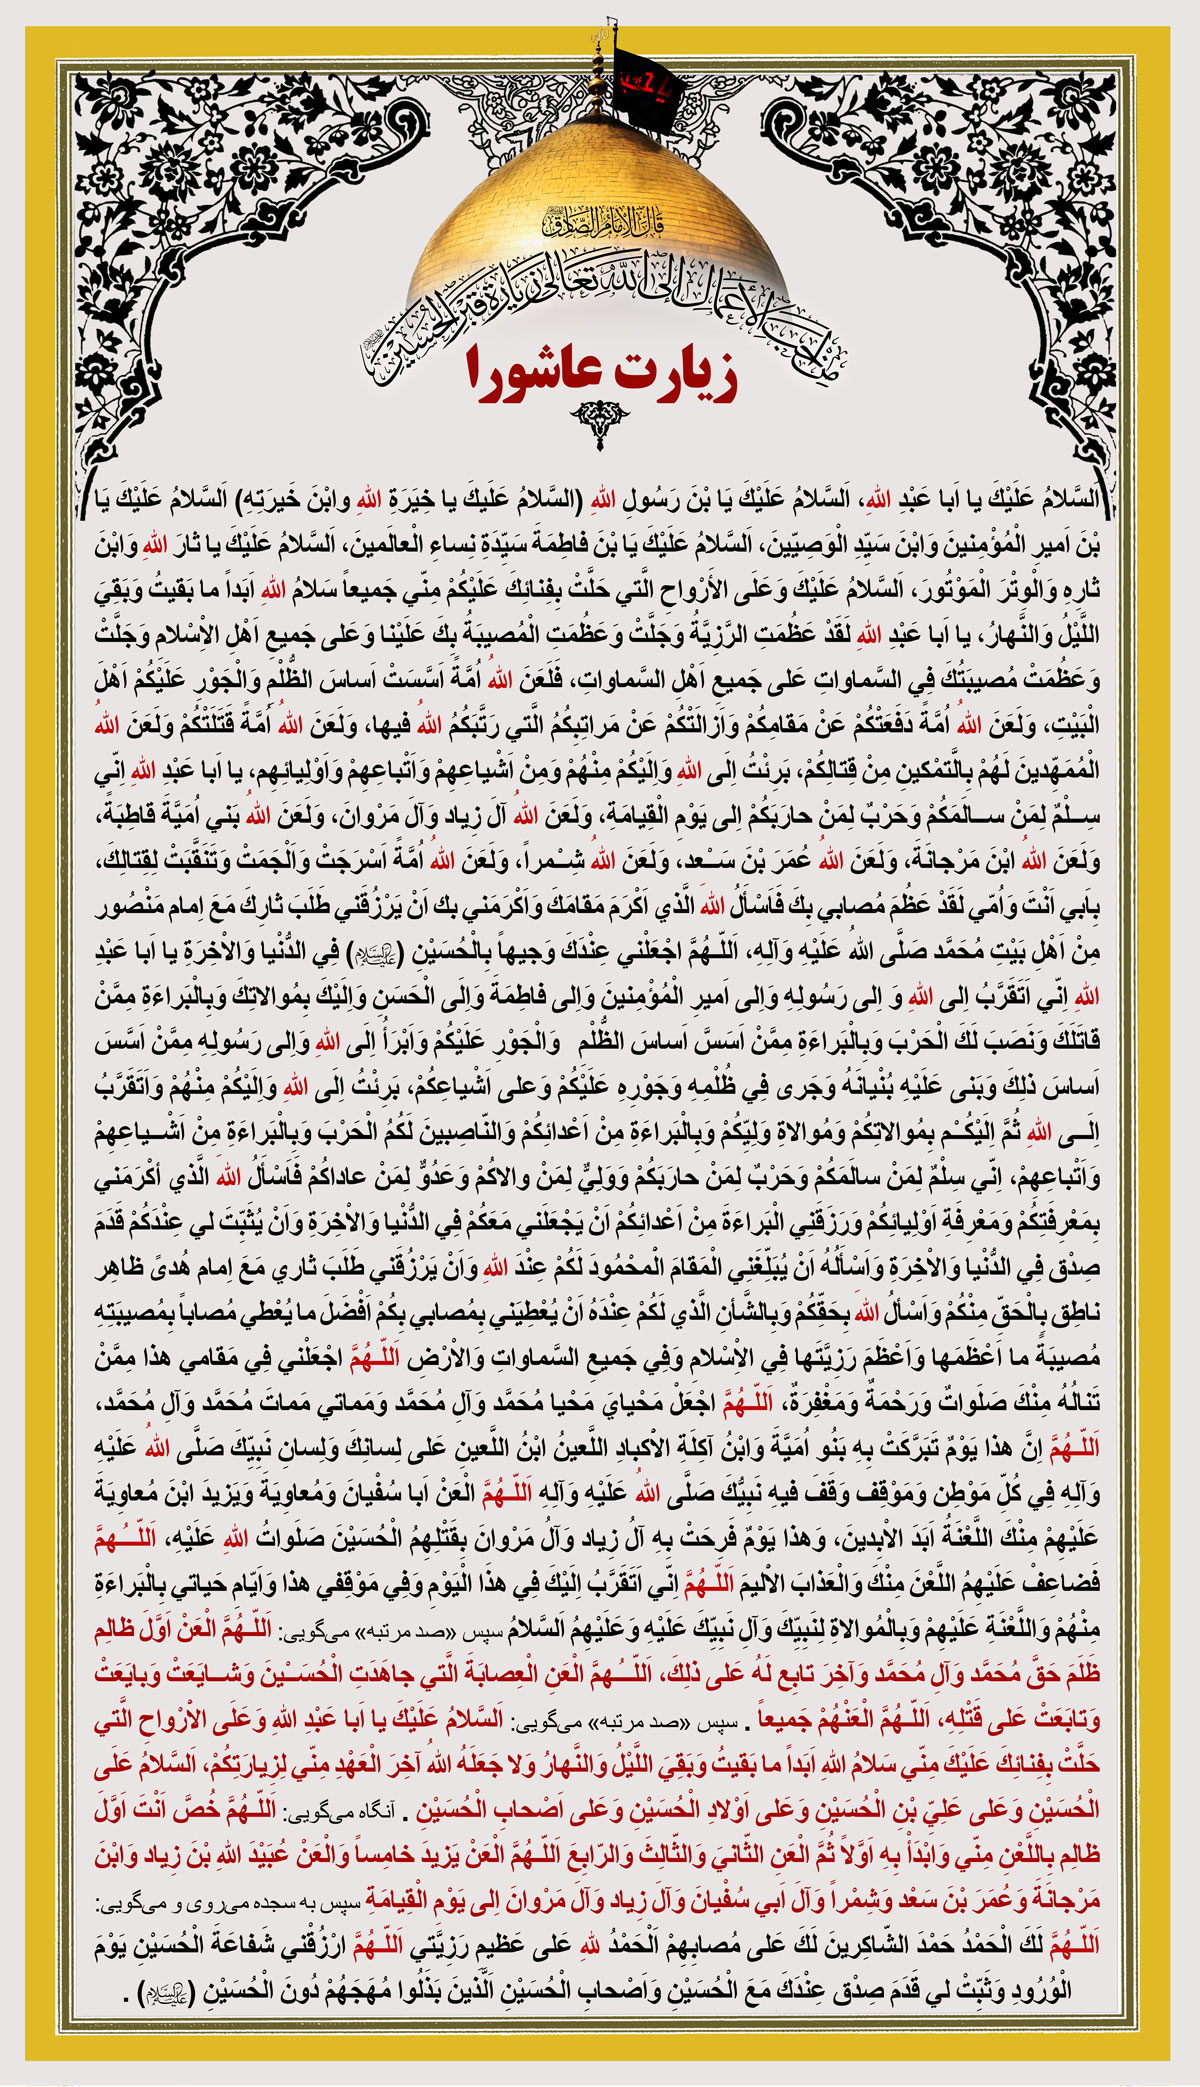 یا حسین
قَالَ الاِمَامُ الصَّادِقُ
مِنْ اَحَبِّ الأَعْمَالِ إِلَى اللّهِ تَعَالَى زِیَارَةُ قَبْرِ الحُسَیْنِ
زیارت عاشورا
اَلسَّلامُ عَلَیْكَ یا اَبا عَبْدِ اللهِ، اَلسَّلامُ عَلَیْكَ یَا بْنَ رَسُولِ اللهِ (السَّلامُ عَلَیكَ یا خِیَرَةِ اللهِ وابْنَ خَیرَتِهِ) اَلسَّلامُ عَلَیْكَ یَا
بْنَ اَمیرِ الْمُؤْمِنینَ وَابْنَ سَیِّدِ الْوَصِیّینَ، اَلسَّلامُ عَلَیْكَ یَا بْنَ فاطِمَةَ سَیِّدَةِ نِساءِ الْعالَمینَ، اَلسَّلامُ عَلَیْكَ یا ثارَ اللهِ وَابْنَ
ثارِهِ وَالْوِتْرَ الْمَوْتُورَ، اَلسَّلامُ عَلَیْكَ وَعَلَى الأَرْواحِ الَّتي حَلَّتْ بِفِنائِكَ عَلَیْكُمْ مِنّي جَمیعاً سَلامُ اللهِ اَبَداً ما بَقیتُ وَبَقِيَ
اللَّیْلُ وَالنَّهارُ، یا اَبا عَبْدِ اللهِ لَقَدْ عَظُمَتِ الرَّزِیَّةُ وَجَلَّتْ وَعَظُمَتِ الْمُصیبَةُ بِكَ عَلَیْنا وَعَلى جَمیعِ اَهْلِ الاْسْلام وَجَلَّتْ
وَعَظُمَتْ مُصیبَتُكَ فِي السَّماواتِ عَلى جَمیعِ اَهْلِ السَّماواتِ، فَلَعَنَ اللهُ اُمَّةً اَسَّسَتْ اَساسَ الظُّلْمِ وَالْجَوْرِ عَلَیْكُمْ اَهْلَ
الْبَیْتِ، وَلَعَنَ اللهُ اُمَّةً دَفَعَتْكُمْ عَنْ مَقامِكُمْ وَاَزالَتْكُمْ عَنْ مَراتِبِكُمُ الَّتي رَتَّبَكُمُ اللهُ فیها، وَلَعَنَ اللهُ اُمَّةً قَتَلَتْكُمْ وَلَعَنَ اللهُ
الْمُمَهِّدینَ لَهُمْ بِالَّتمْكینِ مِنْ قِتالِكُمْ، بَرِئْتُ اِلَى اللهِ وَاِلَیْكُمْ مِنْهُمْ وَمِنْ اَشْیاعِهِمْ وَاَتْباعِهِمْ وَاَوْلِیائِهِم، یا اَبا عَبْدِ اللهِ اِنّي
سِــلْمٌ لِمَنْ ســالَمَكُمْ وَحَرْبٌ لِمَنْ حارَبَكُمْ اِلى یَوْمِ الْقِیامَةِ، وَلَعَنَ اللهُ آلَ زِیاد وَآلَ مَرْوانَ، وَلَعَنَ اللهُ بَني اُمَیَّةَ قاطِبَةً،
وَلَعَنَ اللهُ ابْنَ مَرْجانَةَ، وَلَعَنَ اللهُ عُمَرَ بْنَ سَــعْد، وَلَعَنَ اللهُ شِــمْراً، وَلَعَنَ اللهُ اُمَّةً اَسْرَجَتْ وَاَلْجَمَتْ وَتَنَقَّبَتْ لِقِتالِكَ،
بِاَبي اَنْتَ وَاُمّي لَقَدْ عَظُمَ مُصابي بِكَ فَاَسْأَلُ اللهَ الَّذي اَكْرَمَ مَقامَكَ وَاَكْرَمَني بك اَنْ یَرْزُقَني طَلَبَ ثارِكَ مَعَ اِمام مَنْصُور
مِنْ اَهْلِ بَیْتِ مُحَمَّد صَلَّى اللهُ عَلَیْهِ وَآلِهِ، اَللّـهُمَّ اجْعَلْني عِنْدَكَ وَجیهاً بِالْحُسَیْنِ (علیه‌السلام) فِي الدُّنْیا وَالاْخِرَةِ یا اَبا عَبْدِ
اللهِ اِنّي اَتَقَرَّبُ اِلى اللهِ وَ اِلى رَسُولِهِ وَاِلى اَمیرِ الْمُؤْمِنینَ وَاِلى فاطِمَةَ وَاِلَى الْحَسَنِ وَاِلَیْكَ بِمُوالاتِكَ وَبِالْبَراءَةِ مِمَّنْ
قاتَلَكَ وَنَصَبَ لَكَ الْحَرْبَ وَبِالْبَراءَةِ مِمَّنْ اَسَسَّ اَساسَ الظُّلْمِ وَالْجَوْرِ عَلَیْكُمْ وَاَبْرَأُ اِلَى اللهِ وَاِلى رَسُولِهِ مِمَّنْ اَسَّسَ
اَساسَ ذلِكَ وَبَنى عَلَیْهِ بُنْیانَهُ وَجَرى فِي ظُلْمِهِ وَجَوْرِهِ عَلَیْكُمْ وَعلى اَشْیاعِكُمْ، بَرِئْتُ اِلَى اللهِ وَاِلَیْكُمْ مِنْهُمْ وَاَتَقَرَّبُ
اِلَــى اللهِ ثُمَّ اِلَیْكُــمْ بِمُوالاتِكُمْ وَمُوالاةِ وَلِیِّكُمْ وَبِالْبَراءَةِ مِنْ اَعْدائِكُمْ وَالنّاصِبینَ لَكُمُ الْحَرْبَ وَبِالْبَراءَةِ مِنْ اَشْــیاعِهِمْ
وَاَتْباعِهِمْ، اِنّي سِلْمٌ لِمَنْ سالَمَكُمْ وَحَرْبٌ لِمَنْ حارَبَكُمْ وَوَلِيٌّ لِمَنْ والاكُمْ وَعَدُوٌّ لِمَنْ عاداكُمْ فَاَسْأَلُ اللهَ الَّذي أكْرَمَني
بِمَعْرِفَتِكُمْ وَمَعْرِفَةِ اَوْلِیائِكُمْ وَرَزَقَنِي الْبَراءَةَ مِنْ اَعْدائِكُمْ اَنْ یَجْعَلَني مَعَكُمْ فِي الدُّنْیا وَالاْخِرَةِ وَاَنْ یُثَبِّتَ لي عِنْدَكُمْ قَدَمَ
صِدْق فِي الدُّنْیا وَالاْخِرَةِ وَاَسْأَلُهُ اَنْ یُبَلِّغَنِي الْمَقامَ الْمحْمُودَ لَكُمْ عِنْدَ اللهِ وَاَنْ یَرْزُقَني طَلَبَ ثاري مَعَ اِمام هُدىً ظاهِر
ناطِق بِالْحَقِّ مِنْكُمْ وَاَسْألُ اللهَ بِحَقِّكُمْ وَبِالشَّأنِ الَّذي لَكُمْ عِنْدَهُ اَنْ یُعْطِیَني بِمُصابي بِكُمْ اَفْضَلَ ما یُعْطي مُصاباً بِمُصیبَتِهِ
مُصیبَةً ما اَعْظَمَها وَاَعْظَمَ رَزِیَّتَها فِي الاْسْلامِ وَفِي جَمیعِ السَّماواتِ وَالاْرْضِ اَللّـهُمَّ اجْعَلْني فِي مَقامي هذا مِمَّنْ
تَنالُهُ مِنْكَ صَلَواتٌ وَرَحْمَةٌ وَمَغْفِرَةٌ، اَللّـهُمَّ اجْعَلْ مَحْیايَ مَحْیا مُحَمَّد وَآلِ مُحَمَّد وَمَماتي مَماتَ مُحَمَّد وَآلِ مُحَمَّد،
اَللّـهُمَّ اِنَّ هذا یَوْمٌ تَبَرَّكَتْ بِهِ بَنُو اُمَیَّةَ وَابْنُ آكِلَةِ الاْكبادِ اللَّعینُ ابْنُ اللَّعینِ عَلى لِسانِكَ وَلِسانِ نَبِیِّكَ صَلَّى اللهُ عَلَیْهِ
وَآلِهِ فِي كُلِّ مَوْطِن وَمَوْقِف وَقَفَ فیهِ نَبِیُّكَ صَلَّى اللهُ عَلَیْهِ وَآلِهِ اَللّـهُمَّ الْعَنْ اَبا سُفْیانَ وَمُعاوِیَةَ وَیَزیدَ ابْنَ مُعاوِیَةَ
عَلَیْهِمْ مِنْكَ اللَّعْنَةُ اَبَدَ الاْبِدینَ، وَهذا یَوْمٌ فَرِحَتْ بِهِ آلُ زِیاد وَآلُ مَرْوانَ بِقَتْلِهِمُ الْحُسَیْنَ صَلَواتُ اللهِ عَلَیْهِ، اَللّـــهُمَّ
فَضاعِفْ عَلَیْهِمُ اللَّعْنَ مِنْكَ وَالْعَذابَ الاْلیمَ اَللّـهُمَّ اِنّي اَتَقَرَّبُ اِلَیْكَ فِي هذَا الْیَوْمِ وَفِي مَوْقِفي هذا وَاَیّامِ حَیاتي بِالْبَراءَةِ
مِنْهُمْ وَاللَّعْنَةِ عَلَیْهِمْ وَبِالْمُوالاةِ لِنَبِیِّكَ وَآلِ نَبِیِّكَ عَلَیْهِ وَعَلَیْهِمُ اَلسَّلامُ سپس «صد مرتبه» می‌گویی: اَللّـهُمَّ الْعَنْ اَوَّلَ ظالِم
ظَلَمَ حَقَّ مُحَمَّد وَآلِ مُحَمَّد وَآخِرَ تابِع لَهُ عَلى ذلِكَ، اَللّـــهُمَّ الْعَنِ الْعِصابَةَ الَّتي جاهَدَتِ الْحُسَــیْنَ وَشــایَعَتْ وَبایَعَتْ
وَتابَعَتْ عَلى قَتْلِهِ، اَللّـهُمَّ الْعَنْهُمْ جَمیعاً . سپس «صد مرتبه» می‌گویی: اَلسَّلامُ عَلَیْكَ یا اَبا عَبْدِ اللهِ وَعَلَى الاْرْواحِ الَّتي
حَلَّتْ بِفِنائِكَ عَلَیْكَ مِنّي سَلامُ اللهِ اَبَداً ما بَقیتُ وَبَقِيَ اللَّیْلُ وَالنَّهارُ وَلا جَعَلَهُ اللهُ آخِرَ الْعَهْدِ مِنّي لِزِیارَتِكُمْ، اَلسَّلامُ عَلَى
الْحُسَیْنِ وَعَلى عَلِيِّ بْنِ الْحُسَیْنِ وَعَلى اَوْلادِ الْحُسَیْنِ وَعَلى اَصْحابِ الْحُسَیْنِ . آنگاه می‌گویی: اَللّـهُمَّ خُصَّ اَنْتَ اَوَّلَ
ظالِم بِاللَّعْنِ مِنّي وَابْدَأْ بِهِ اَوَّلاً ثُمَّ الْعَنِ الثّانيَ وَالثّالِثَ وَالرّابِعَ اَللّـهُمَّ الْعَنْ یَزیدَ خامِساً وَالْعَنْ عُبَیْدَ اللهِ بْنَ زِیاد وَابْنَ
مَرْجانَةَ وَعُمَرَ بْنَ سَعْد وَشِمْراً وَآلَ اَبي سُفْیانَ وَآلَ زِیاد وَآلَ مَرْوانَ اِلى یَوْمِ الْقِیامَةِ سپس به سجده می‌روی و می‌گویی:
اَللّـهُمَّ لَكَ الْحَمْدُ حَمْدَ الشّاكِرینَ لَكَ عَلى مُصابِهِمْ اَلْحَمْدُ للهِ عَلى عَظیمِ رَزِیَّتي اَللّـهُمَّ ارْزُقْني شَفاعَةَ الْحُسَیْنِ یَوْمَ
الْوُرُودِ وَثَبِّتْ لي قَدَمَ صِدْق عِنْدَكَ مَعَ الْحُسَیْنِ وَاَصْحابِ الْحُسَیْنِ الَّذینَ بَذَلُوا مُهَجَهُمْ دُونَ الْحُسَیْنِ (علیه‌السلام) .